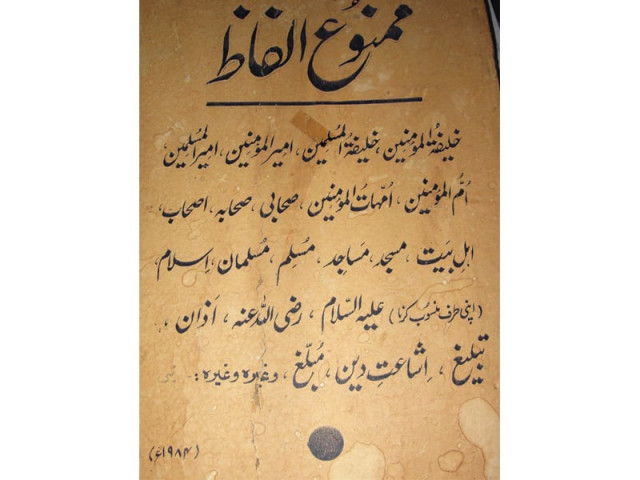 ممنوع الفاظ
خلیفۃ المؤمنین، خلیفۃ المسلمین، امیر المؤمنین، امیر المسلمین،
اُمّ المؤمنین، اُمّہات المؤمنین، صحابی، صحابہ، اصحاب،
اہلِ بیت، مسجد، مساجد، مُسلم، مُسلمان، اِسلام،
(اپنی طرف منسُوب کرنا) علیہ السّلام، رضی اللہ عنہ، اَذان،
تبلیغ، اِشاعتِ دین، مُبلّغ، وغیرہ وغیرہ:
(۱۹۸۴ء)